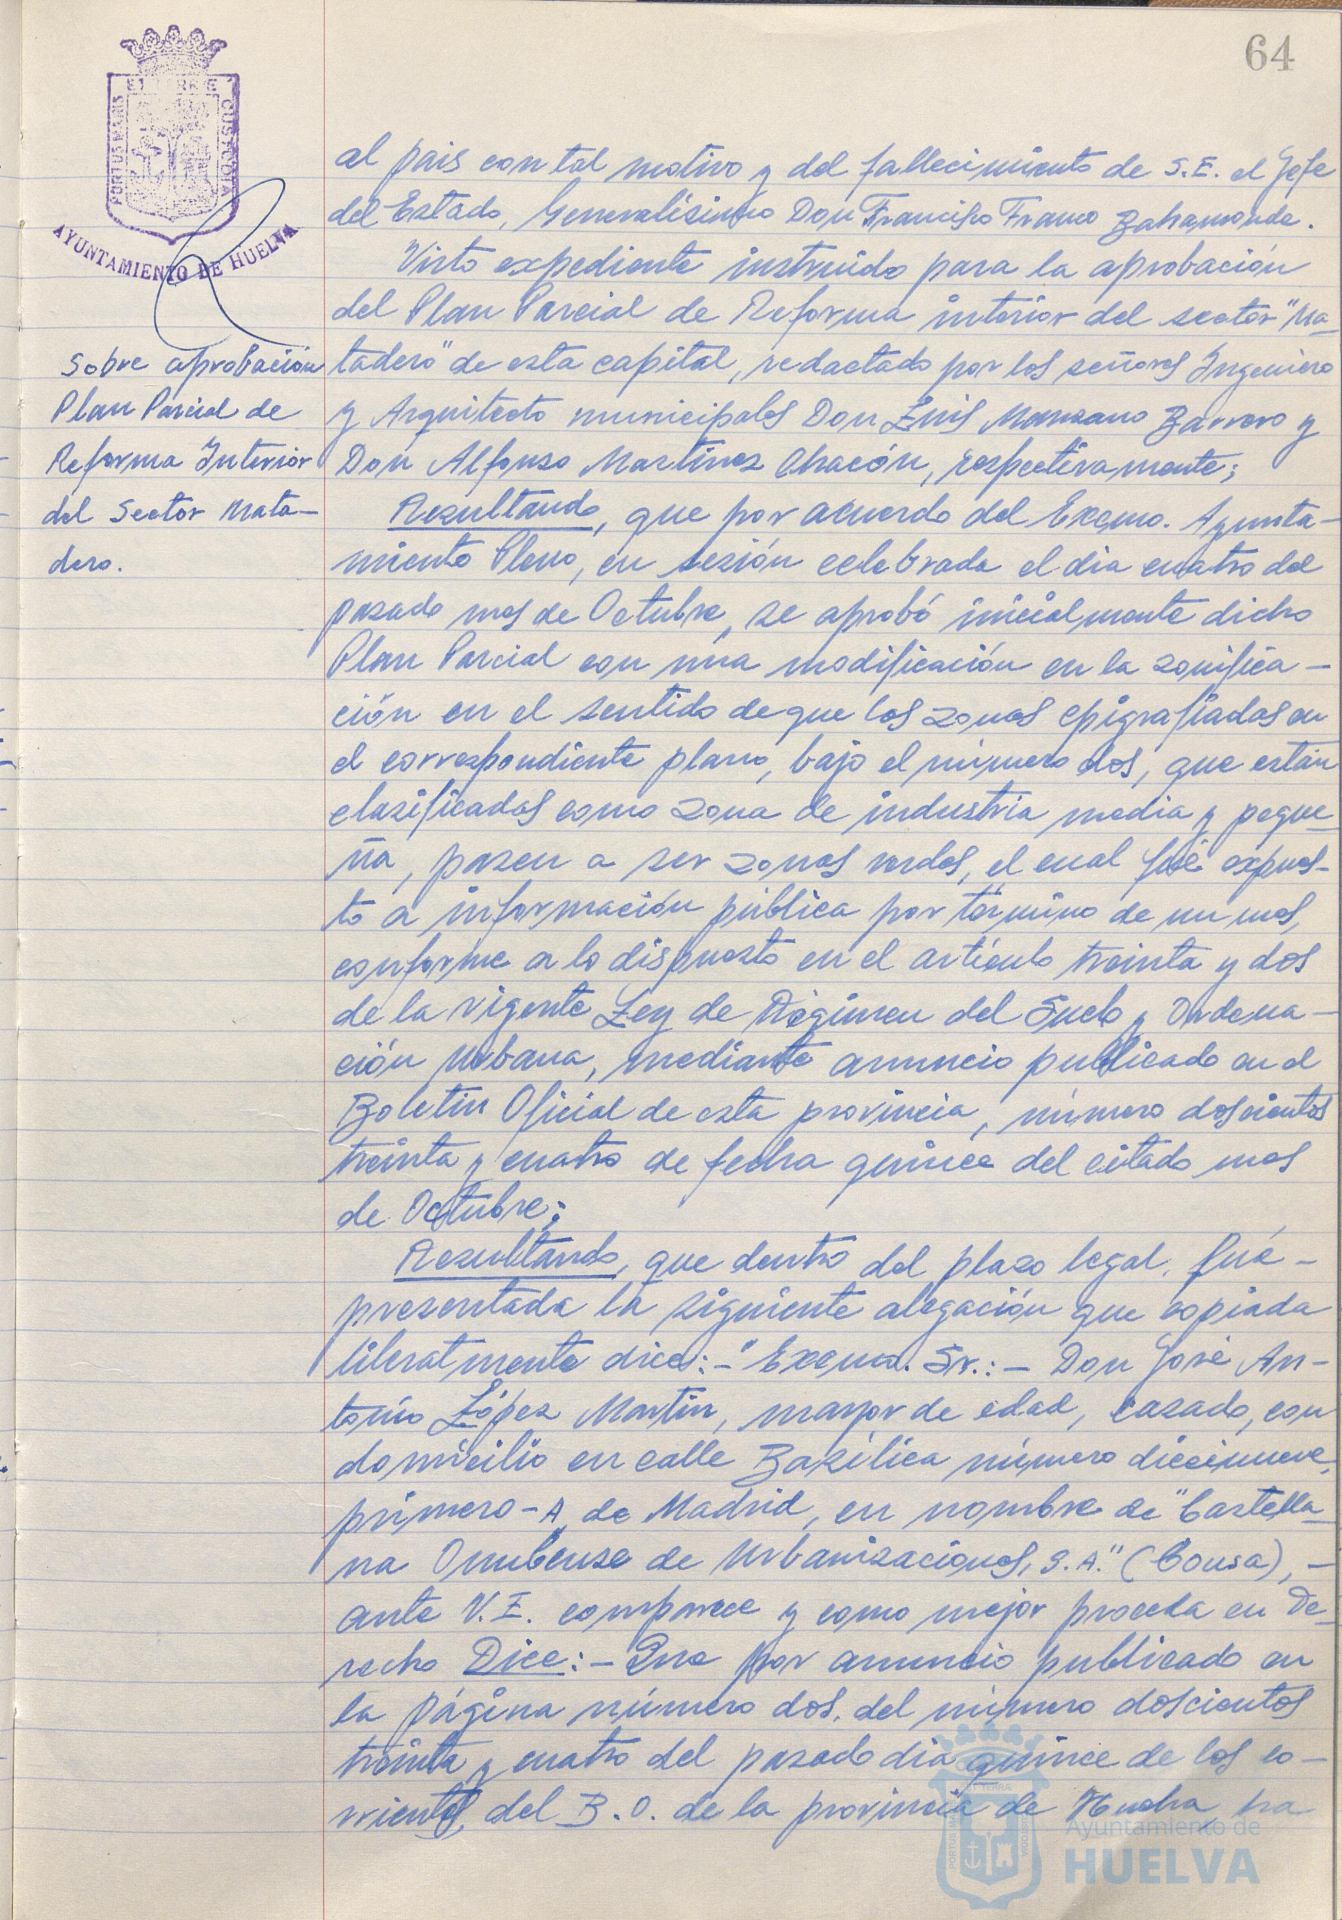 64
ET TERRE
PORTUS MARIS
CUSTODIA
AYUNTAMIENTO DE HUELVA
al pais con tal motivo y del fallecimiento de S.E. el Jefe
del Estado, Generalisimo Don Francisco Franco Bahamonde.
Visto expediente instruido para la aprobación
del Plan Parcial de Reforma interior del sector "Ma-
tadero" de esta capital, redactado por los señores Ingeniero
y Arquitecto municipales Don Luis Manzano Barrero y
Don Alfonso Martinez Chacón, respectivamente;
Sobre aprobación
Plan Parcial de
Reforma Interior
del Sector Mata-
dero.
Resultando, que por acuerdo del Excmo. Ayunta-
miento Pleno, en sesión celebrada el dia cuatro del
pasado mes de Octubre, se aprobó inicialmente dicho
Plan Parcial con una modificación en la zonifica-
ción en el sentido de que las zonas epigrafiadas en
el correspondiente plano, bajo el número dos, que están
clasificadas como zona de industria media y peque-
ña, pasen a ser zonas verdes, el cual fué expues-
to a información pública por término de un mes,
conforme a lo dispuesto en el artículo treinta y dos
de la vigente Ley de Régimen del Suelo y Ordena-
ción Urbana, mediante anuncio publicado en el
Boletin Oficial de esta provincia, número doscientos
treinta y cuatro de fecha quince del citado mes
de Octubre;
Resultando, que dentro del plazo legal, fué -
presentada la siguiente alegación que copiada
literalmente dice: - "Excmo. Sr.: - Don José An-
tonio López Martin, mayor de edad, casado, con
domicilio en calle Basílica número diecinueve,
primero-A, de Madrid, en nombre de "Castella-
na Onubense de Urbanizaciones, S.A." (Cousa), -
ante V.E. comparece y como mejor proceda en De-
recho Dice: - Que por anuncio publicado en
la página número dos, del número doscientos
treinta y cuatro del pasado dia quince de los co-
rrientes, del B.O. de la provincia de Huelva, ha
Ayuntamiento de
HUELVA